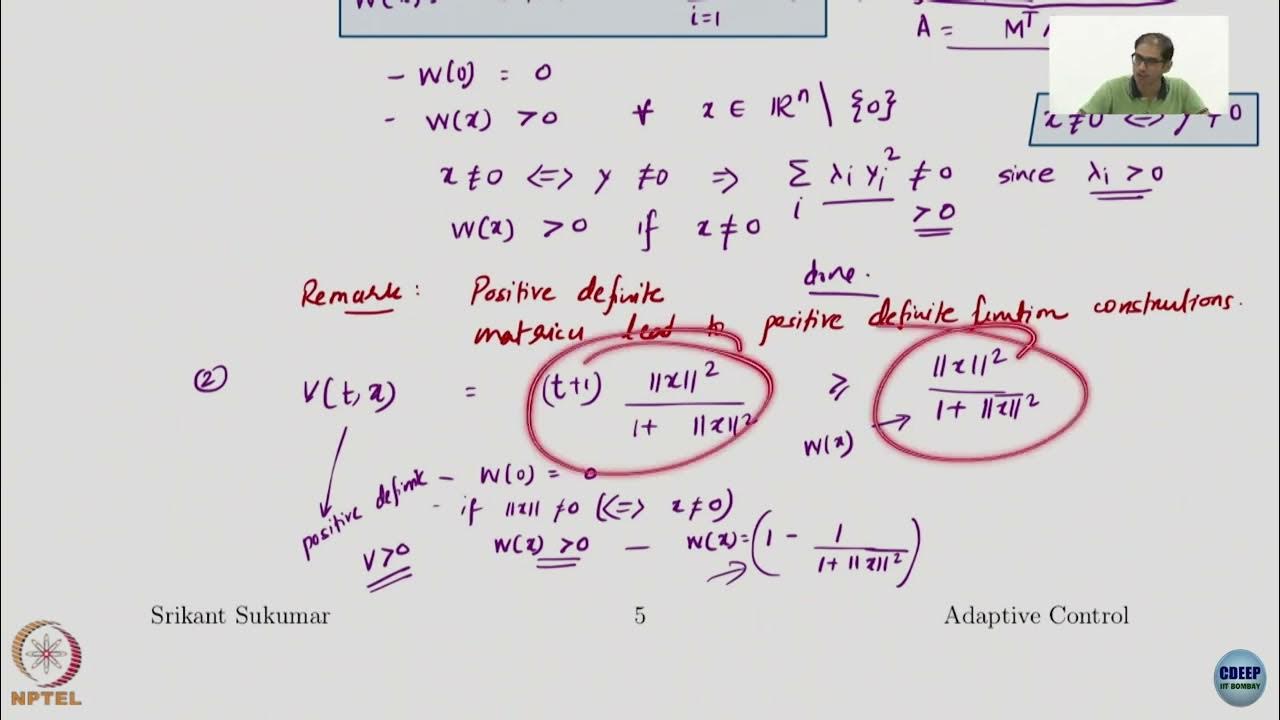 i=1
A = M^T
- W(0) = 0
- W(x) > 0 ∀ x ∈ ℝ^n \ {0}
x ≠ 0 <=> y ≠ 0
x ≠ 0 <=> y ≠ 0 => Σ_i λ_i y_i^2 ≠ 0 since λ_i > 0
> 0
W(x) > 0 if x ≠ 0
done.
Remark: Positive definite
matrices lead to positive definite function constructions.
② V(t, x) = (t+1) ||x||^2 / (1 + ||x||^2) ≥ ||x||^2 / (1 + ||x||^2)
W(x) →
positive definite - W(0) = 0
- if ||x|| ≠ 0 (<=> x ≠ 0)
V > 0 W(x) > 0 — W(x) = (1 - 1 / (1 + ||x||^2))
Srikant Sukumar 5 Adaptive Control
NPTEL
CDEEP
IIT BOMBAY